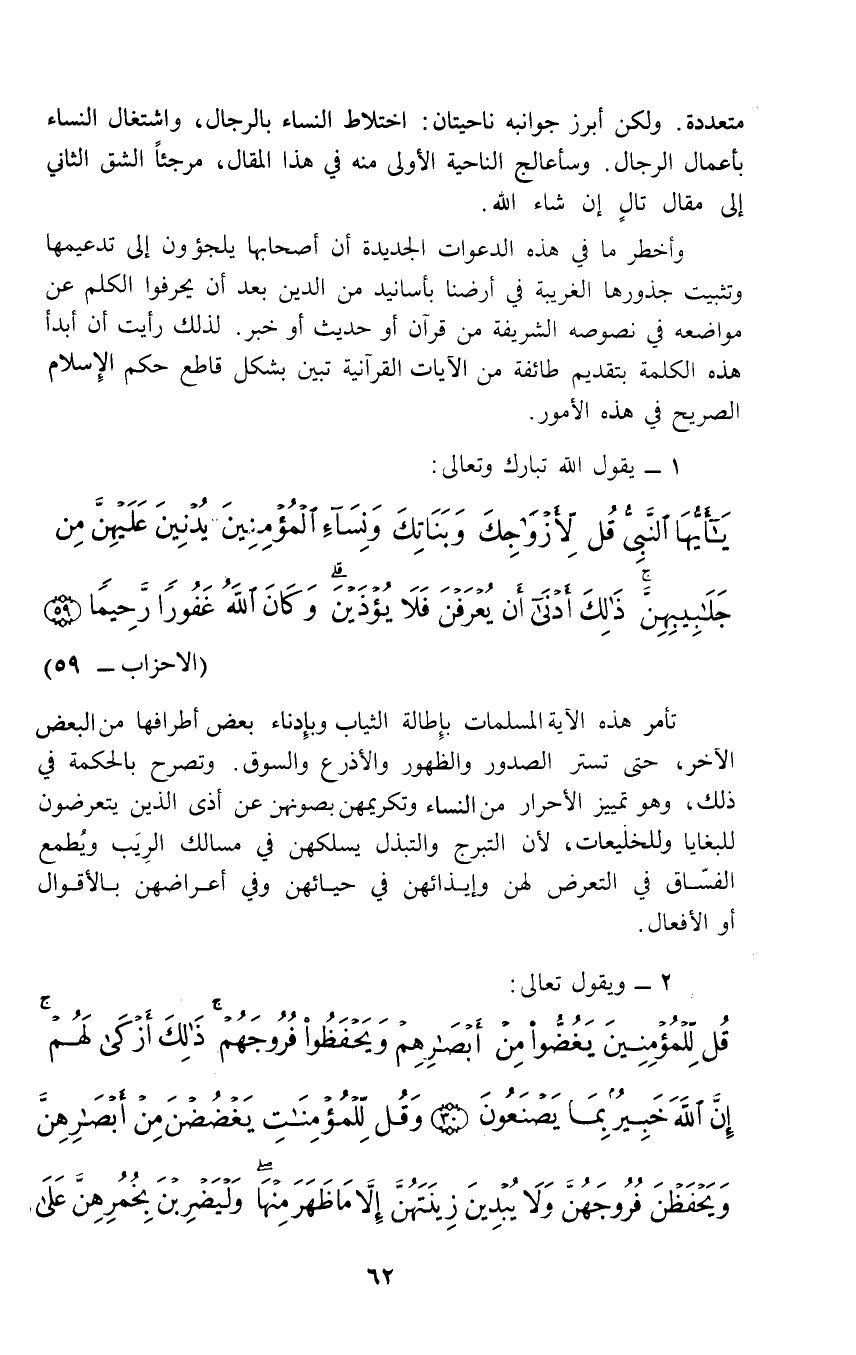 متعددة. ولكن أبرز جوانبه ناحيتان: اختلاط النساء بالرجال، واشتغال النساء
بأعمال الرجال. وسأعالج الناحية الأولى منه في هذا المقال، مرجئاً الشق الثاني
إلى مقال تالٍ إن شاء الله.
وأخطر ما في هذه الدعوات الجديدة أن أصحابها يلجؤون إلى تدعيمها
وتثبيت جذورها الغريبة في أرضنا بأسانيد من الدين بعد أن يحرفوا الكلم عن
مواضعه في نصوصه الشريفة من قرآن أو حديث أو خبر. لذلك رأيت أن أبدأ
هذه الكلمة بتقديم طائفة من الآيات القرآنية تبين بشكل قاطع حكم الإسلام
الصريح في هذه الأمور.
١ ــ يقول الله تبارك وتعالى:
يَـٰٓأَيُّهَا ٱلنَّبِيُّ قُل لِّأَزْوَٰجِكَ وَبَنَاتِكَ وَنِسَآءِ ٱلْمُؤْمِنِينَ يُدْنِينَ عَلَيْهِنَّ مِن
جَلَـٰبِيبِهِنَّ ۚ ذَٰلِكَ أَدْنَىٰٓ أَن يُعْرَفْنَ فَلَا يُؤْذَيْنَ ۗ وَكَانَ ٱللَّهُ غَفُورًا رَّحِيمًا ﴿٥٩﴾
(الاحزاب ــ ٥٩)
تأمر هذه الآية المسلمات بإطالة الثياب وبإدناء بعض أطرافها من البعض
الآخر، حتى تستر الصدور والظهور والأذرع والسوق. وتصرح بالحكمة في
ذلك، وهو تمييز الأحرار من النساء وتكريمهن بصونهن عن أذى الذين يتعرضون
للبغايا وللخليعات، لأن التبرج والتبذل يسلكهن في مسالك الرِيَب ويُطمع
الفسّـاق في التعرض لهن وإيـذائهن في حيـائهن وفي أعـراضهن بـالأقـوال
أو الأفعال.
٢ ــ ويقول تعالى:
قُل لِّلْمُؤْمِنِـينَ يَغُضُّواْ مِنْ أَبْصَـٰرِهِمْ وَيَحْفَظُواْ فُرُوجَهُمْ ۚ ذَٰلِكَ أَزْكَىٰ لَهُـمْ ۚ
إِنَّ ٱللَّهَ خَبِـيرٌۢ بِمَـا يَصْنَعُونَ ﴿٣٠﴾ وَقُـل لِّلْمُؤْمِنَـٰتِ يَغْضُضْنَ مِنْ أَبْصَـٰرِهِنَّ
وَيَحْفَظْنَ فُرُوجَهُنَّ وَلَا يُبْدِينَ زِينَتَهُنَّ إِلَّا مَا ظَهَرَ مِنْهَا ۖ وَلْيَضْرِبْنَ بِخُمُرِهِنَّ عَلَىٰ
٦٢